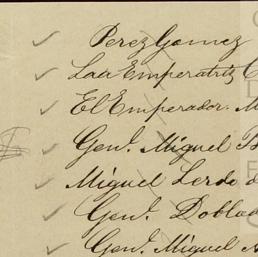 Perez Gomez
La Emperatriz C
El Emperador. M
Genl. Miguel
Miguel Lerdo d
Genl. Doblad
Genl. Miguel